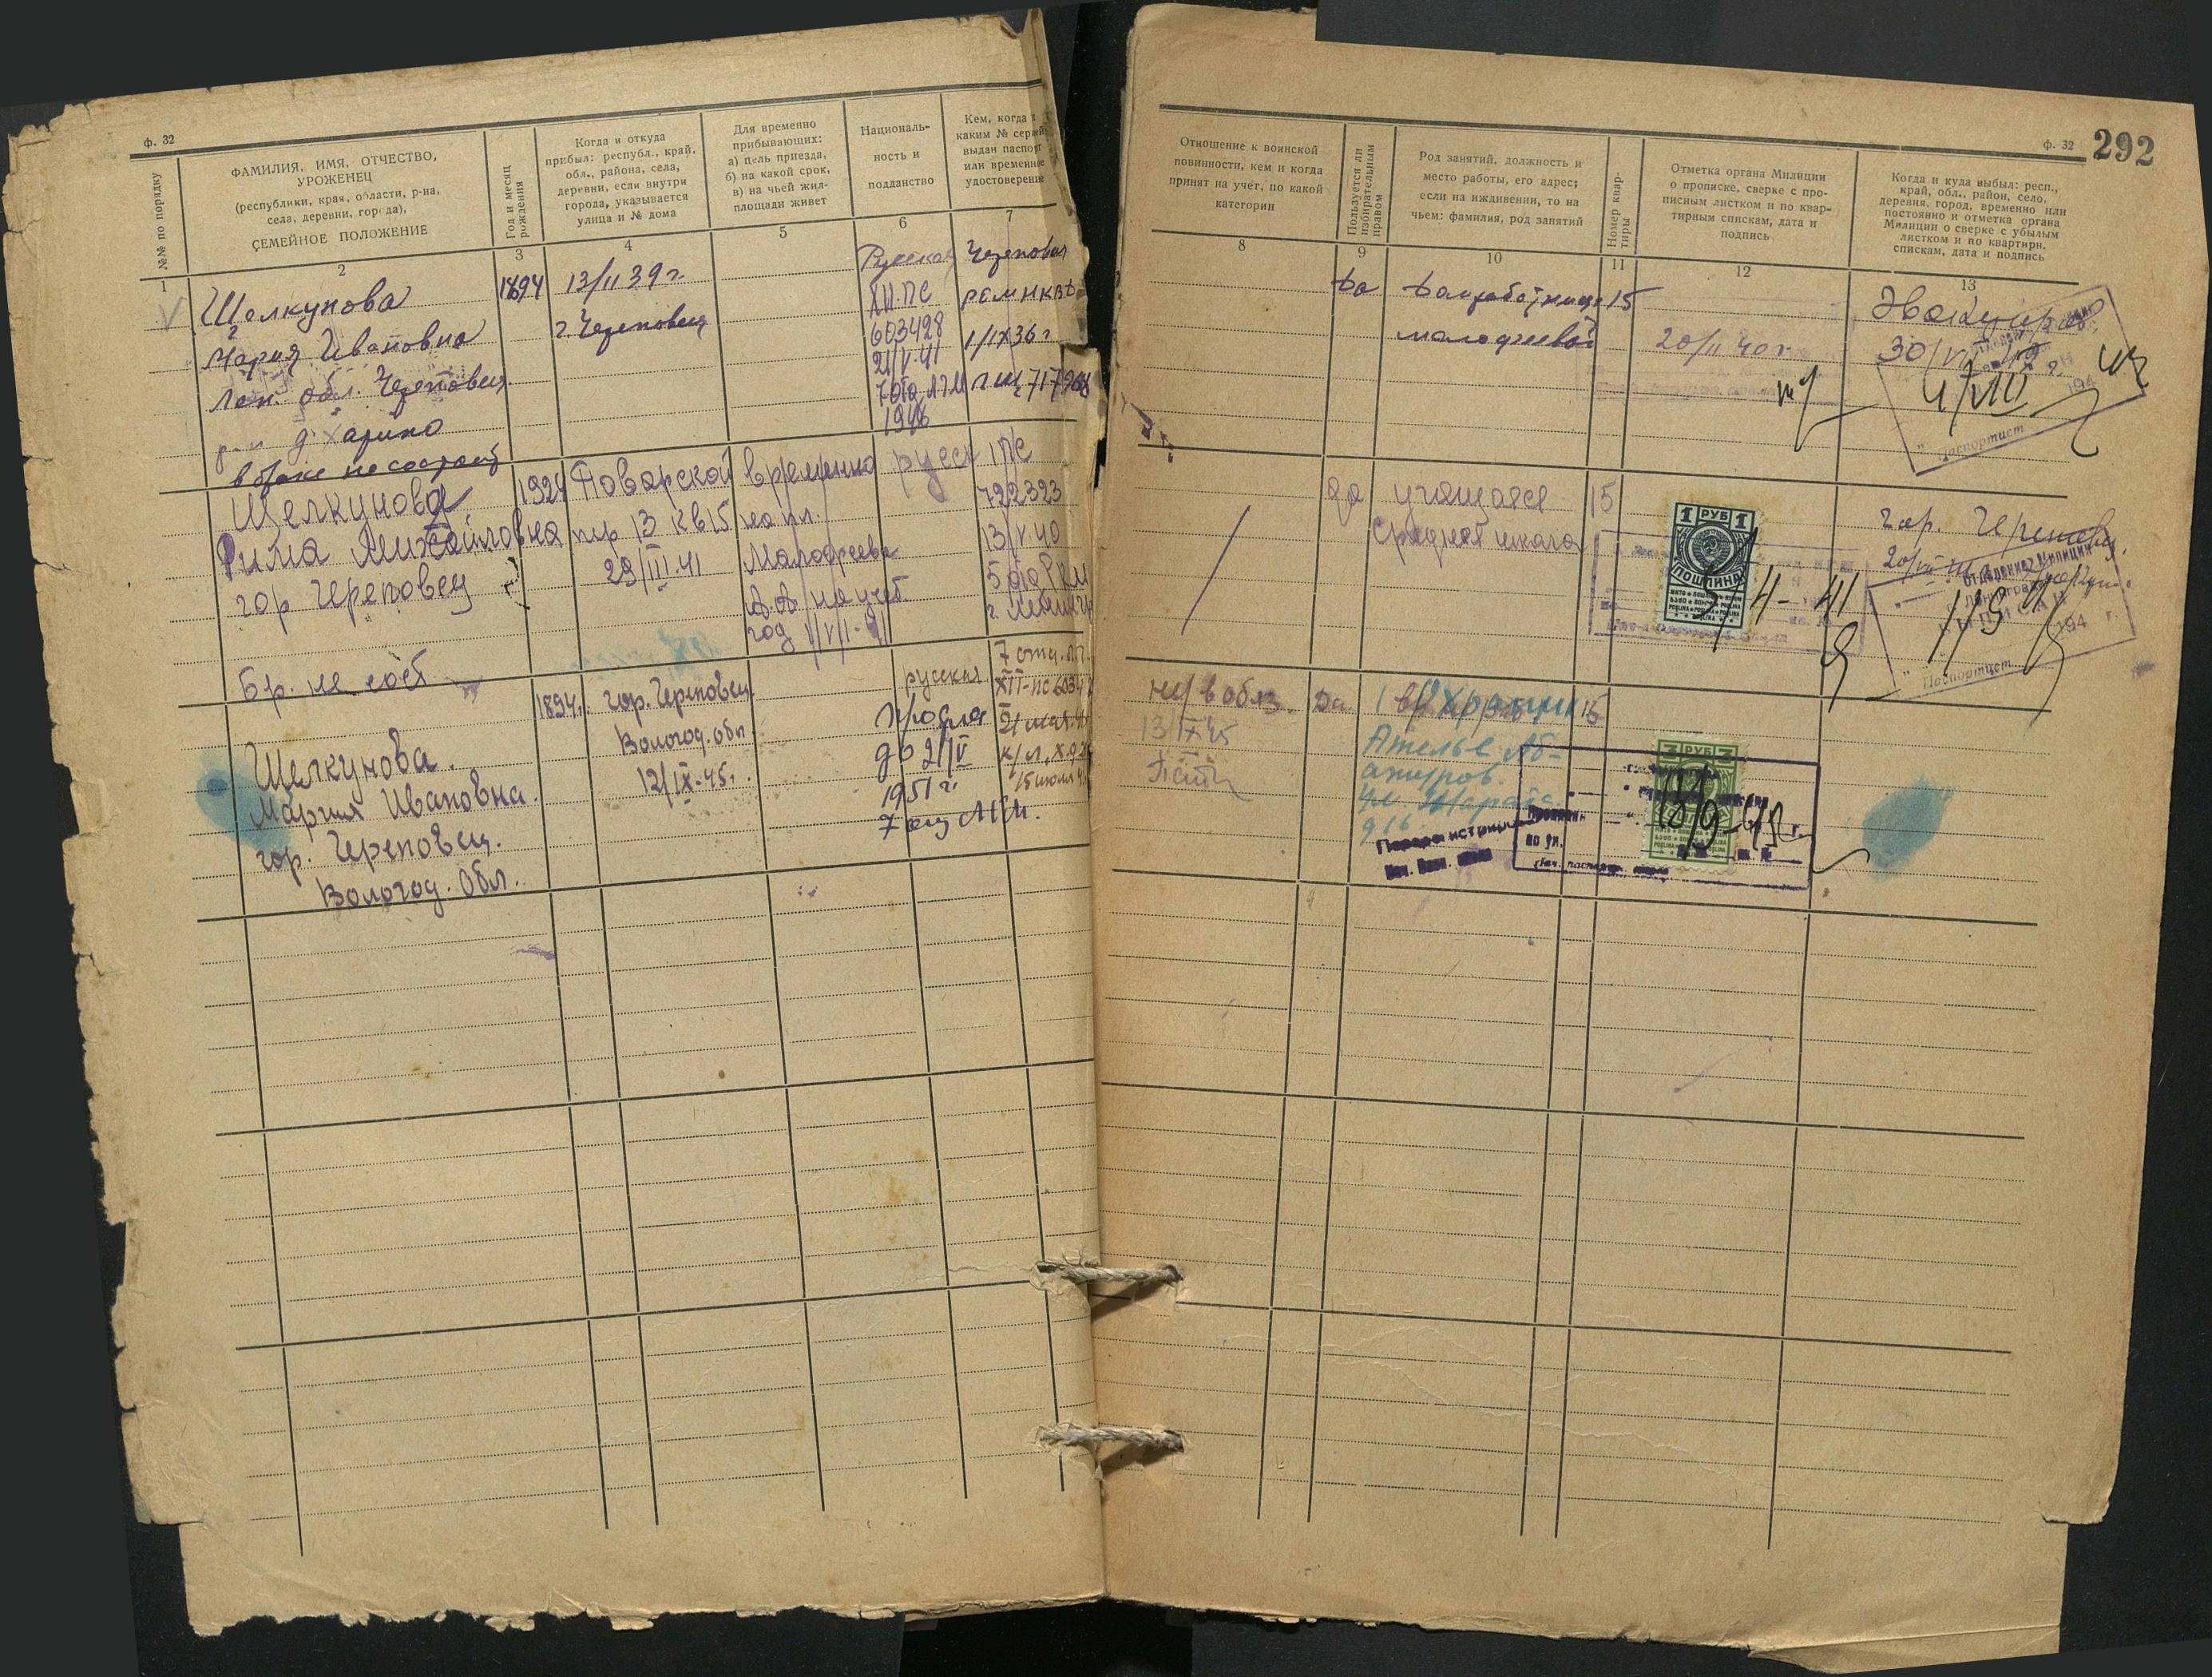 ф. 32
№№ по порядку
ФАМИЛИЯ, ИМЯ, ОТЧЕСТВО,
УРОЖЕНЕЦ
(республики, края, области, р-на,
села, деревни, города),
СЕМЕЙНОЕ ПОЛОЖЕНИЕ
Год и месяц
рождения
Когда и откуда
прибыл: республ., край,
обл., района, села,
деревни, если внутри
города, указывается
улица и № дома
Для временно
прибывающих:
а) цель приезда,
б) на какой срок,
в) на чьей жил-
площади живет
Националь-
ность и
подданство
Кем, когда и
каким № серией
выдан паспорт
или временное
удостоверение
1
2
3
4
5
6
7
Щелкунова
Мария Ивановна
Лен. обл. Череповец.
р-н д. Харино
в браке не состоит
1894
13/II 39 г.
г. Череповец
Русская
XII ПС
603428
21/V-41
7 отд ЛГМ
1946
Череповец
РОМ НКВД
1/IX 36 г
717968
Щелкунова
Рима Михайловна
гор Череповец
Бр. не сост
1924
Поварской
пер 13 кв 15
29/III.41
временно
на пл.
Малофеева
А.А. на учеб
год
русск
I ПС
722323
13/V 40
5 отд РКМ
г. Ленингр
Щелкунова.
Мария Ивановна.
гор. Череповец.
Вологод. Обл.
1894г.
гор. Череповец
Вологод. обл
12/IX-45г.
русская
продлен
до 21/V
1951 г.
7 отд ЛГМ.
7 отд. ЛГ
XII-ПС 60342
21 мая
15 июля
ф. 32
292
Отношение к воинской
повинности, кем и когда
принят на учет, по какой
категории
Пользуется ли
избирательным
правом
Род занятий, должность и
место работы, его адрес;
если на иждивении, то на
чьем: фамилия, род занятий
Номер квар-
тиры
Отметка органа Милиции
о прописке, сверке с про-
писным листком и по квар-
тирным спискам, дата и
подпись
Когда и куда выбыл: респ.,
край, обл., район, село,
деревня, город, временно или
постоянно и отметка органа
Милиции о сверке с убылым
листком и по квартирн.
спискам, дата и подпись
8
9
10
11
12
13
да
Домработница
15
20/II 40 г.
Эвакуиров
30/VII
4/VIII
194
Паспортист
да
учащаяся
Средней школы
15
1 РУБ 1
ПОШЛИНА
4-41
гор. Череповец.
Отделение Милиции
ВЫПИСАН
194 г.
Паспортист
не/в обяз.
13/IX 45
Да
Охранник
15
Ателье Аб-
ажуров.
ул. Марата
д 16
3 РУБ 3
13/9-45 г.
Перерегистрация
Прописан
по ул.
Нач. паспортн.